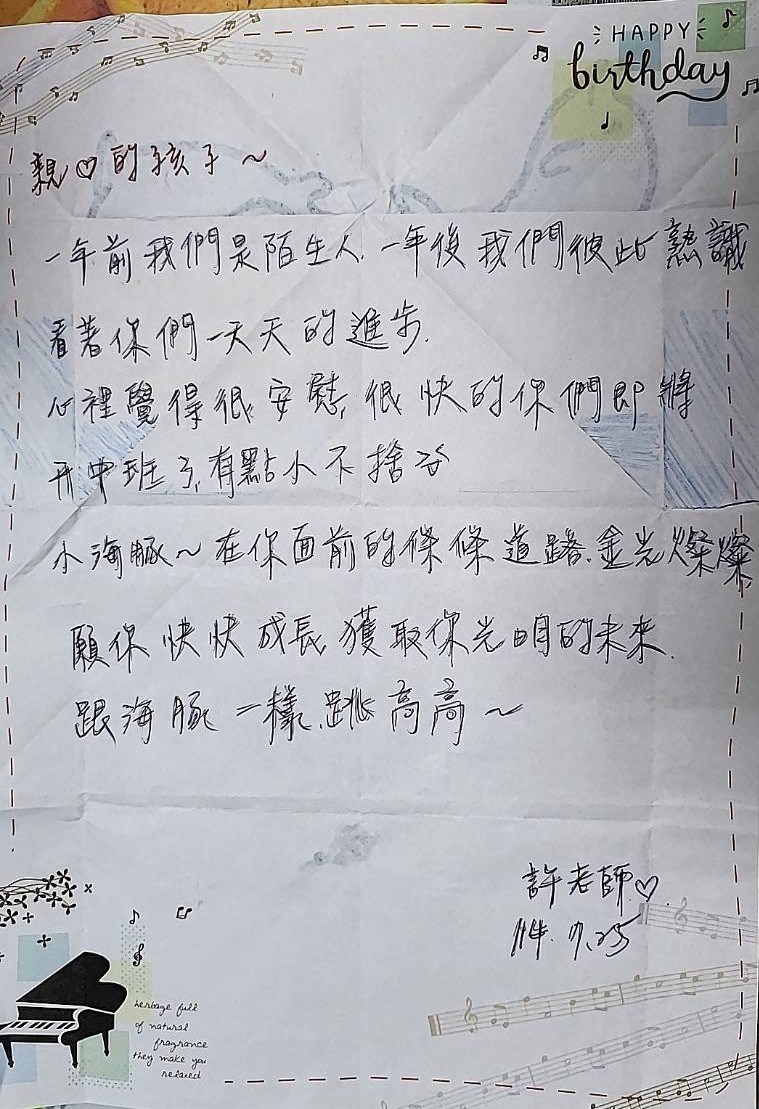 HAPPY
birthday
親♡的孩子～
一年前我們是陌生人,一年後我們彼此熟識
看著你們一天天的進步.
心裡覺得很安慰,很快的你們即將
升中班了,有點小不捨
小海豚～在你面前的條條道路.金光燦燦,
願你快快成長,獲取你光明的未來.
跟海豚一樣,跳高高～
許老師♡
114.7.25
heritage full
of natural
fragrance
they make you
relaxed